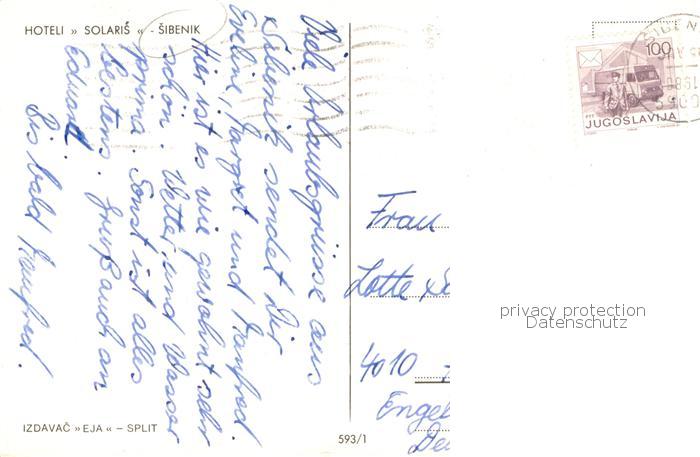 HOTELI » SOLARIŠ « - ŠIBENIK
Viele Urlaubsgrüsse aus
Šibenik sendet Dir
Eveline, Margret und Manfred.
Hier ist es wie gewohnt sehr
schön. Wetter und Wasser
prima. Sonst ist alles
bestens. Gruß auch an
Eduard.
Bis bald Manfred.
IZDAVAČ » EJA « – SPLIT
593/1
100
PTT
JUGOSLAVIJA
Frau
Lotte
4010
Engel
privacy protection
Datenschutz